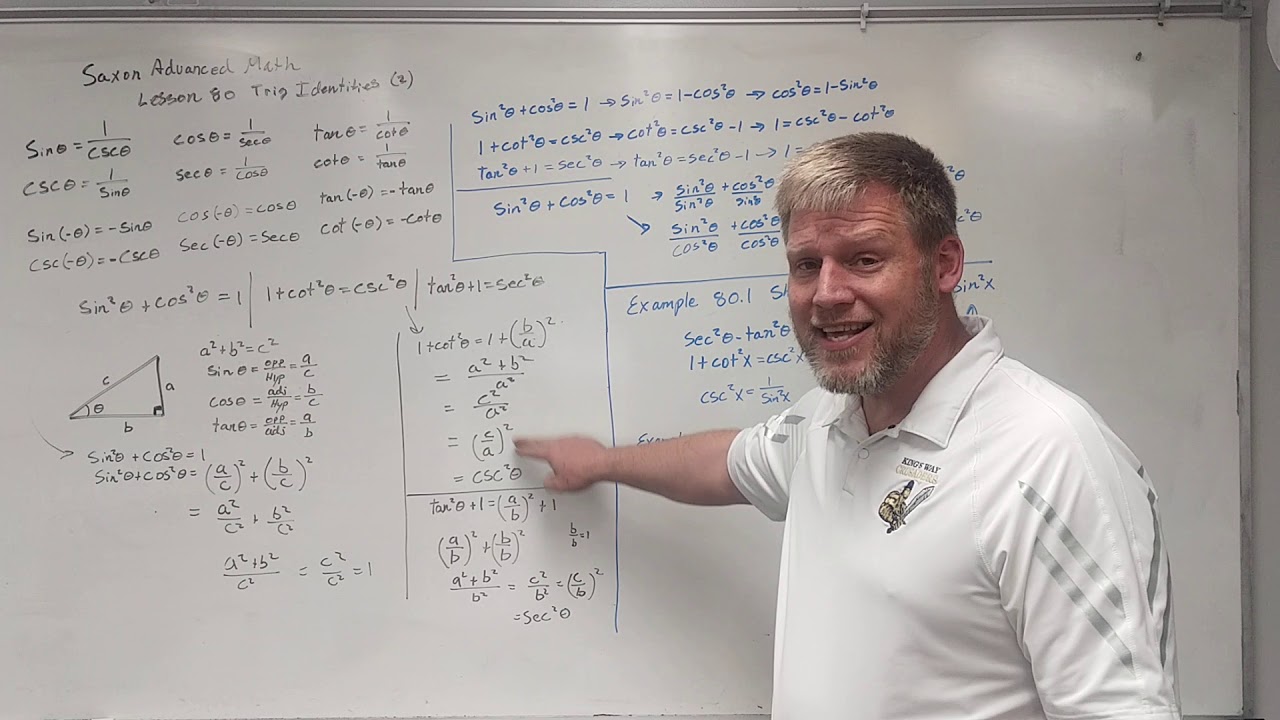 Saxon Advanced Math
Lesson 80 Trig Identities (2)
Sinθ = 1/cscθ
cosθ = 1/secθ
tanθ = 1/cotθ
cscθ = 1/Sinθ
secθ = 1/cosθ
cotθ = 1/tanθ
Sin(-θ) = -Sinθ
cos(-θ) = cosθ
tan(-θ) = -tanθ
csc(-θ) = -cscθ
Sec(-θ) = Secθ
cot(-θ) = -cotθ
Sin²θ + cos²θ = 1 | 1 + cot²θ = csc²θ | tan²θ + 1 = Sec²θ
c
a
θ
b
a² + b² = c²
Sinθ = opp/Hyp = a/c
cosθ = adj/Hyp = b/c
tanθ = opp/adj = a/b
Sin²θ + cos²θ = 1
Sin²θ + cos²θ = (a/c)² + (b/c)²
= a²/c² + b²/c²
a² + b²/c² = c²/c² = 1
1 + cot²θ = 1 + (b/a)²
= a² + b²/a²
= c²/a²
= (c/a)²
= csc²θ
tan²θ + 1 = (a/b)² + 1
(a/b)² + (b/b)²
b/b = 1
a² + b²/b² = c²/b² = (c/b)²
= Sec²θ
Sin²θ + cos²θ = 1 → Sin²θ = 1 - cos²θ → cos²θ = 1 - Sin²θ
1 + cot²θ = csc²θ → cot²θ = csc²θ - 1 → 1 = csc²θ - cot²θ
tan²θ + 1 = Sec²θ → tan²θ = Sec²θ - 1 → 1 =
Sin²θ + cos²θ = 1 → Sin²θ/Sin²θ + cos²θ/Sin²θ
Sin²θ/cos²θ + cos²θ/cos²θ
Example 80.1
Sin²x
Sec²θ - tan²θ
1 + cot²x = csc²x
csc²x = 1/Sin²x
KING'S WAY
CRUSADERS